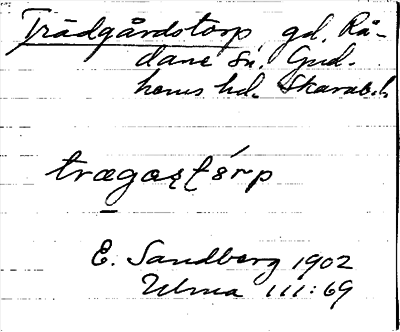 Trädgårdstorp gd. Rå-
dane sn. Gud-
hems hd. Skarab. l.
trægastórp
E. Sandberg 1902
Ulma 111:69